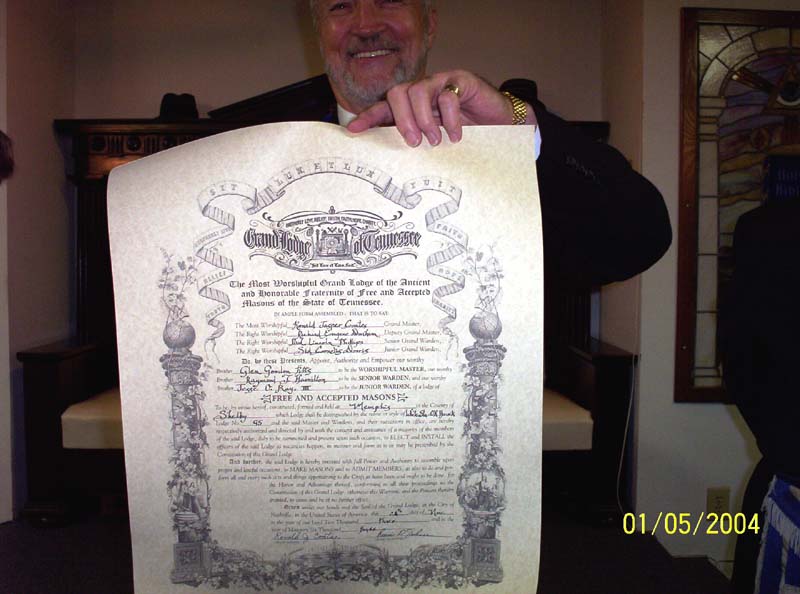 SIT LUX ET LUX FUIT
BROTHERLY LOVE, RELIEF, TRUTH, FAITH, HOPE, CHARITY
Grand Lodge of Tennessee
BROTHERLY LOVE
RELIEF
TRUTH
FAITH
HOPE
The Most Worshipful Grand Lodge of the Ancient
and Honorable Fraternity of Free and Accepted
Masons of the State of Tennessee.
IN AMPLE FORM ASSEMBLED: THAT IS TO SAY:
The Most Worshipful Ronald Jasper Coates Grand Master,
The Right Worshipful Richard Eugene Deputy Grand Master,
The Right Worshipful Lincoln Phillips Senior Grand Warden,
The Right Worshipful Junior Grand Warden,
Do, by these Presents, Appoint, Authorize and Empower our worthy
Brother Glen Gordon Pitts to be the WORSHIPFUL MASTER, our worthy
Brother Raymond J. Hamilton to be the SENIOR WARDEN, and our worthy
Brother Jesse C. Ray, III to be the JUNIOR WARDEN, of a lodge of
FREE AND ACCEPTED MASONS
To be, by virtue hereof, constituted, formed and held at Memphis in the County of
Shelby which Lodge shall be distinguished by the name or style of
Lodge No. 95 and the said Master and Wardens, and their successors in office, are hereby
respectively authorized and directed by and with the consent and assistance of a majority of the members
of the said Lodge, duly to be summoned and present upon such occasions, to ELECT and INSTALL the
officers of the said Lodge as vacancies happen, in manner and form as is or may be prescribed by the
Constitution of this Grand Lodge.
And further, the said Lodge is hereby invested with full Power and Authority to assemble upon
proper and lawful occasions, to MAKE MASONS and to ADMIT MEMBERS, as also to do and per-
form all and every such acts and things appertaining to the Craft as have been and ought to be done, for
the Honor and Advantage thereof, conforming in all their proceedings to the
Constitution of this Grand Lodge, otherwise this Warrant, and the Powers thereby
granted, to cease and be of no further effect.
GIVEN under our hands and the Seal of the Grand Lodge, at the City of
Nashville, in the United States of America, this day of
in the year of our Lord Two Thousand Three and in the
year of Masonry Six Thousand Three
01/05/2004